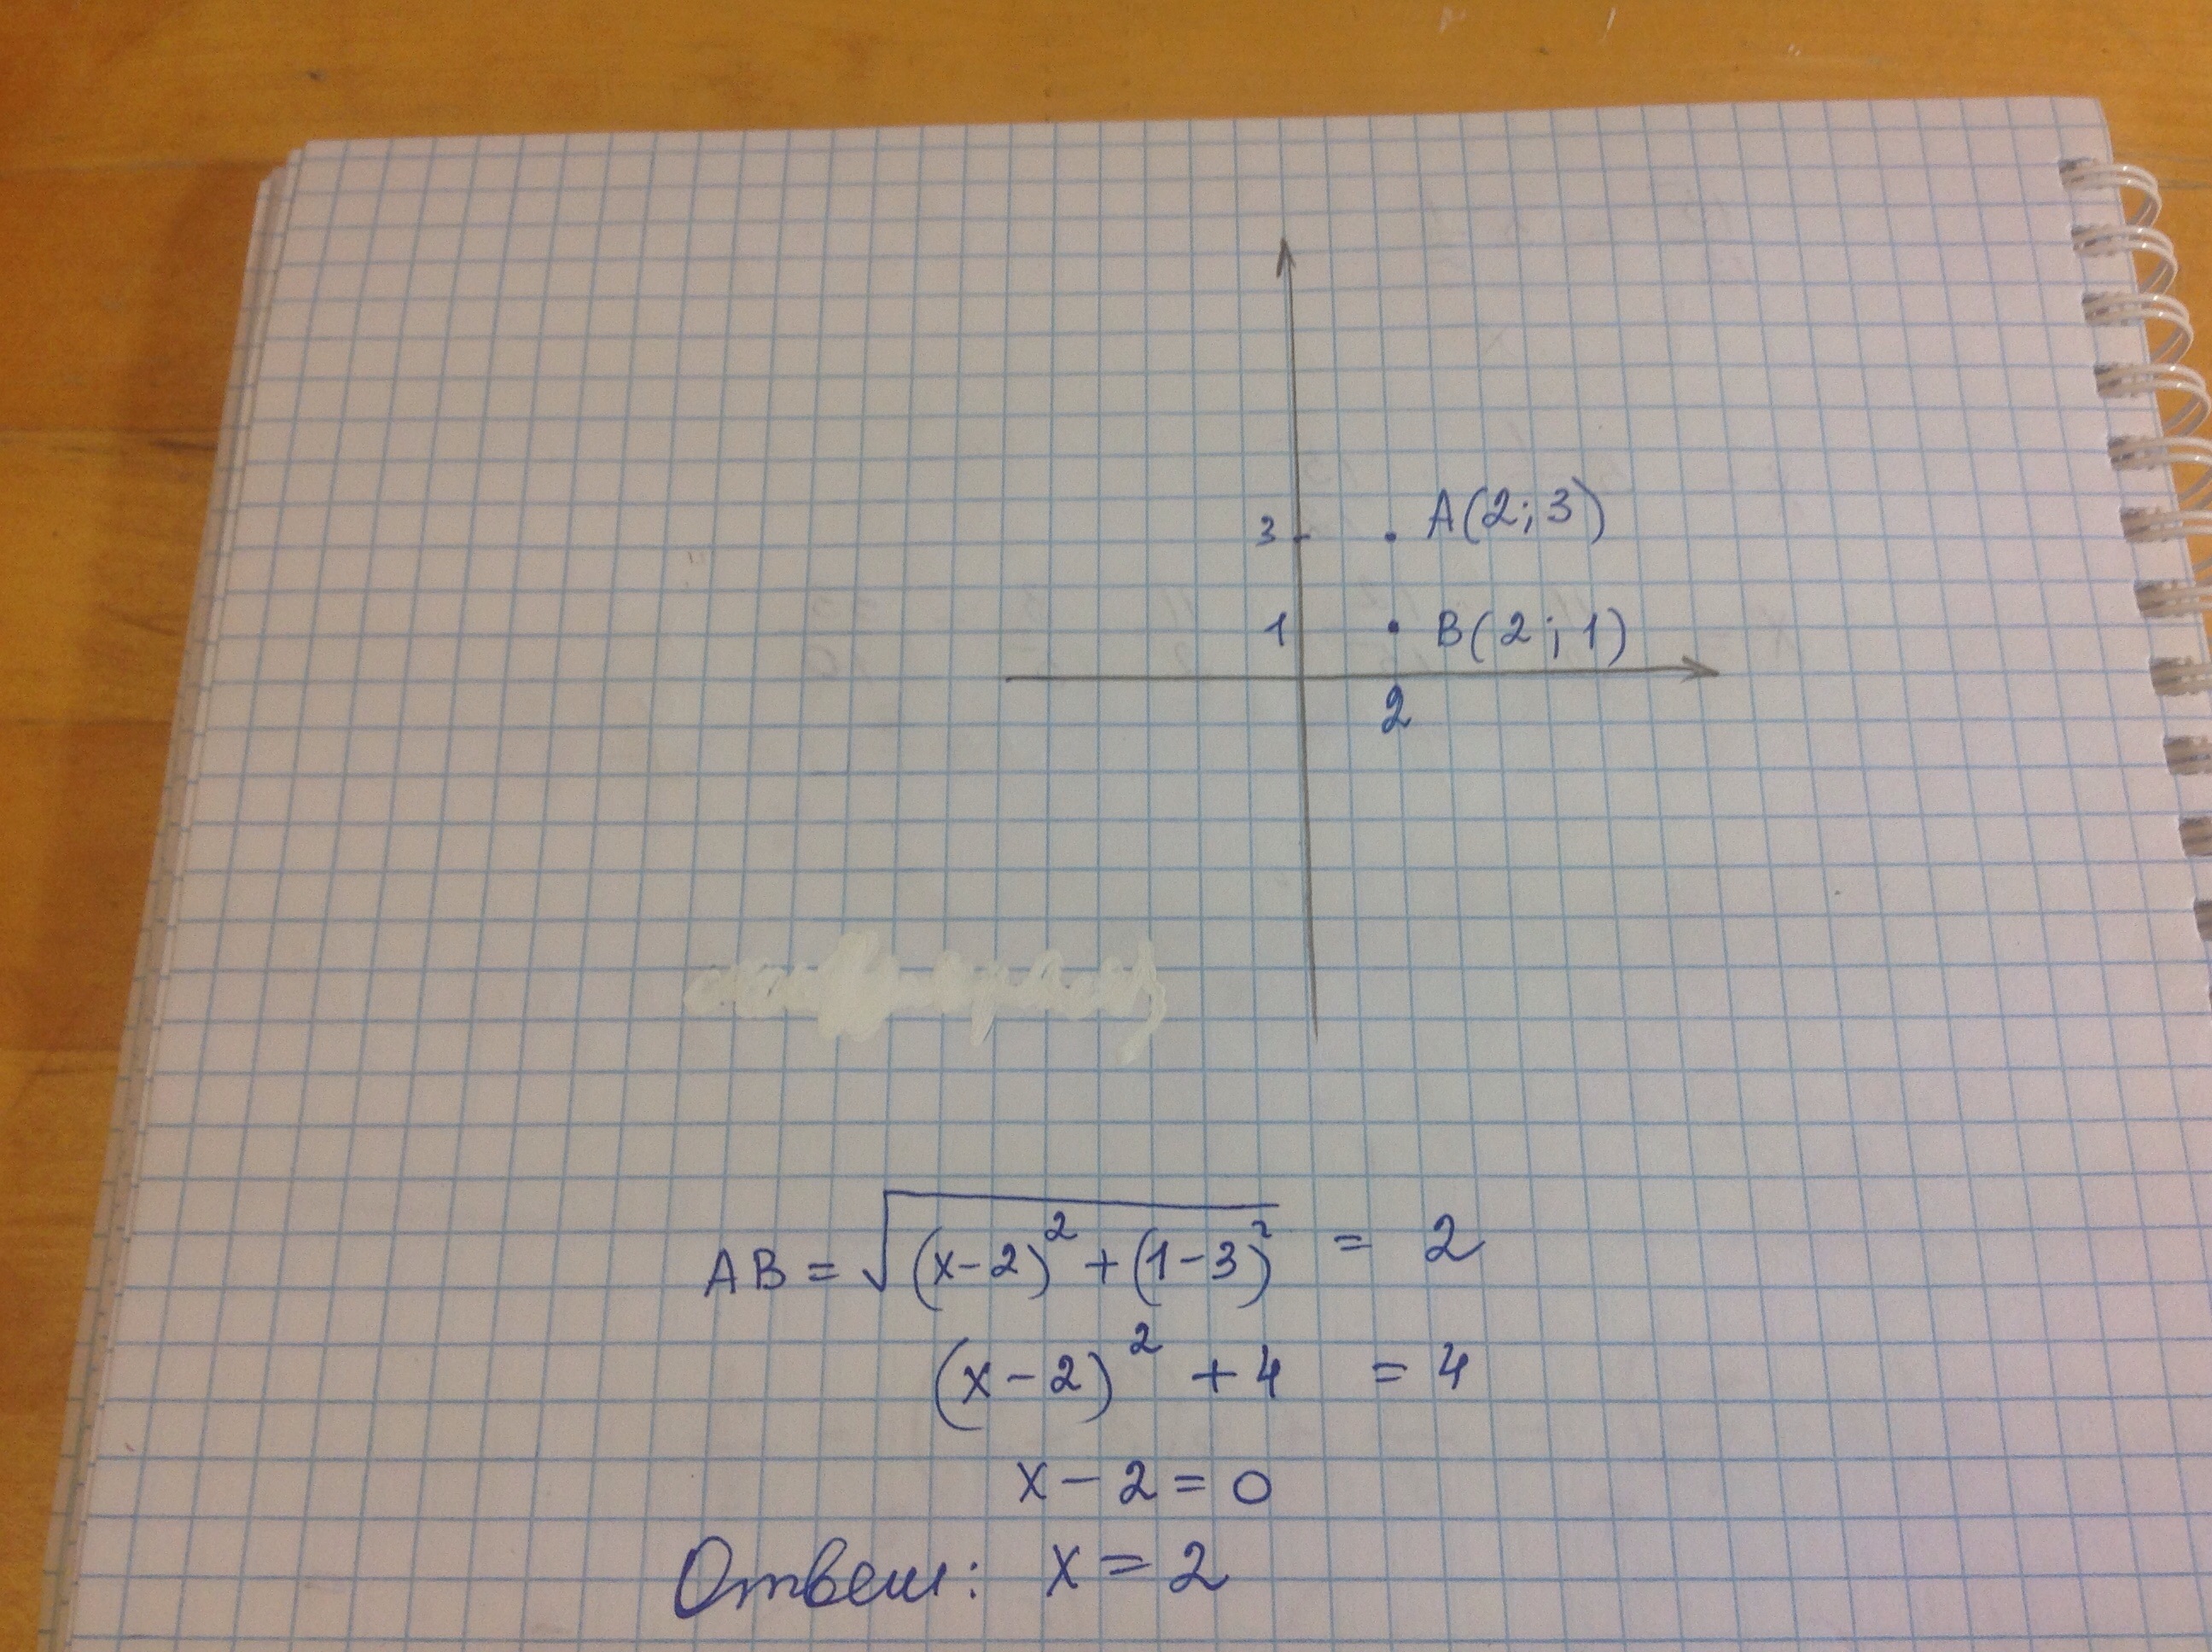 3 A(2; 3)
1 B(2; 1)
2
AB = √(x-2)² + (1-3)² = 2
(x-2)² + 4 = 4
x - 2 = 0
Ответ: x = 2